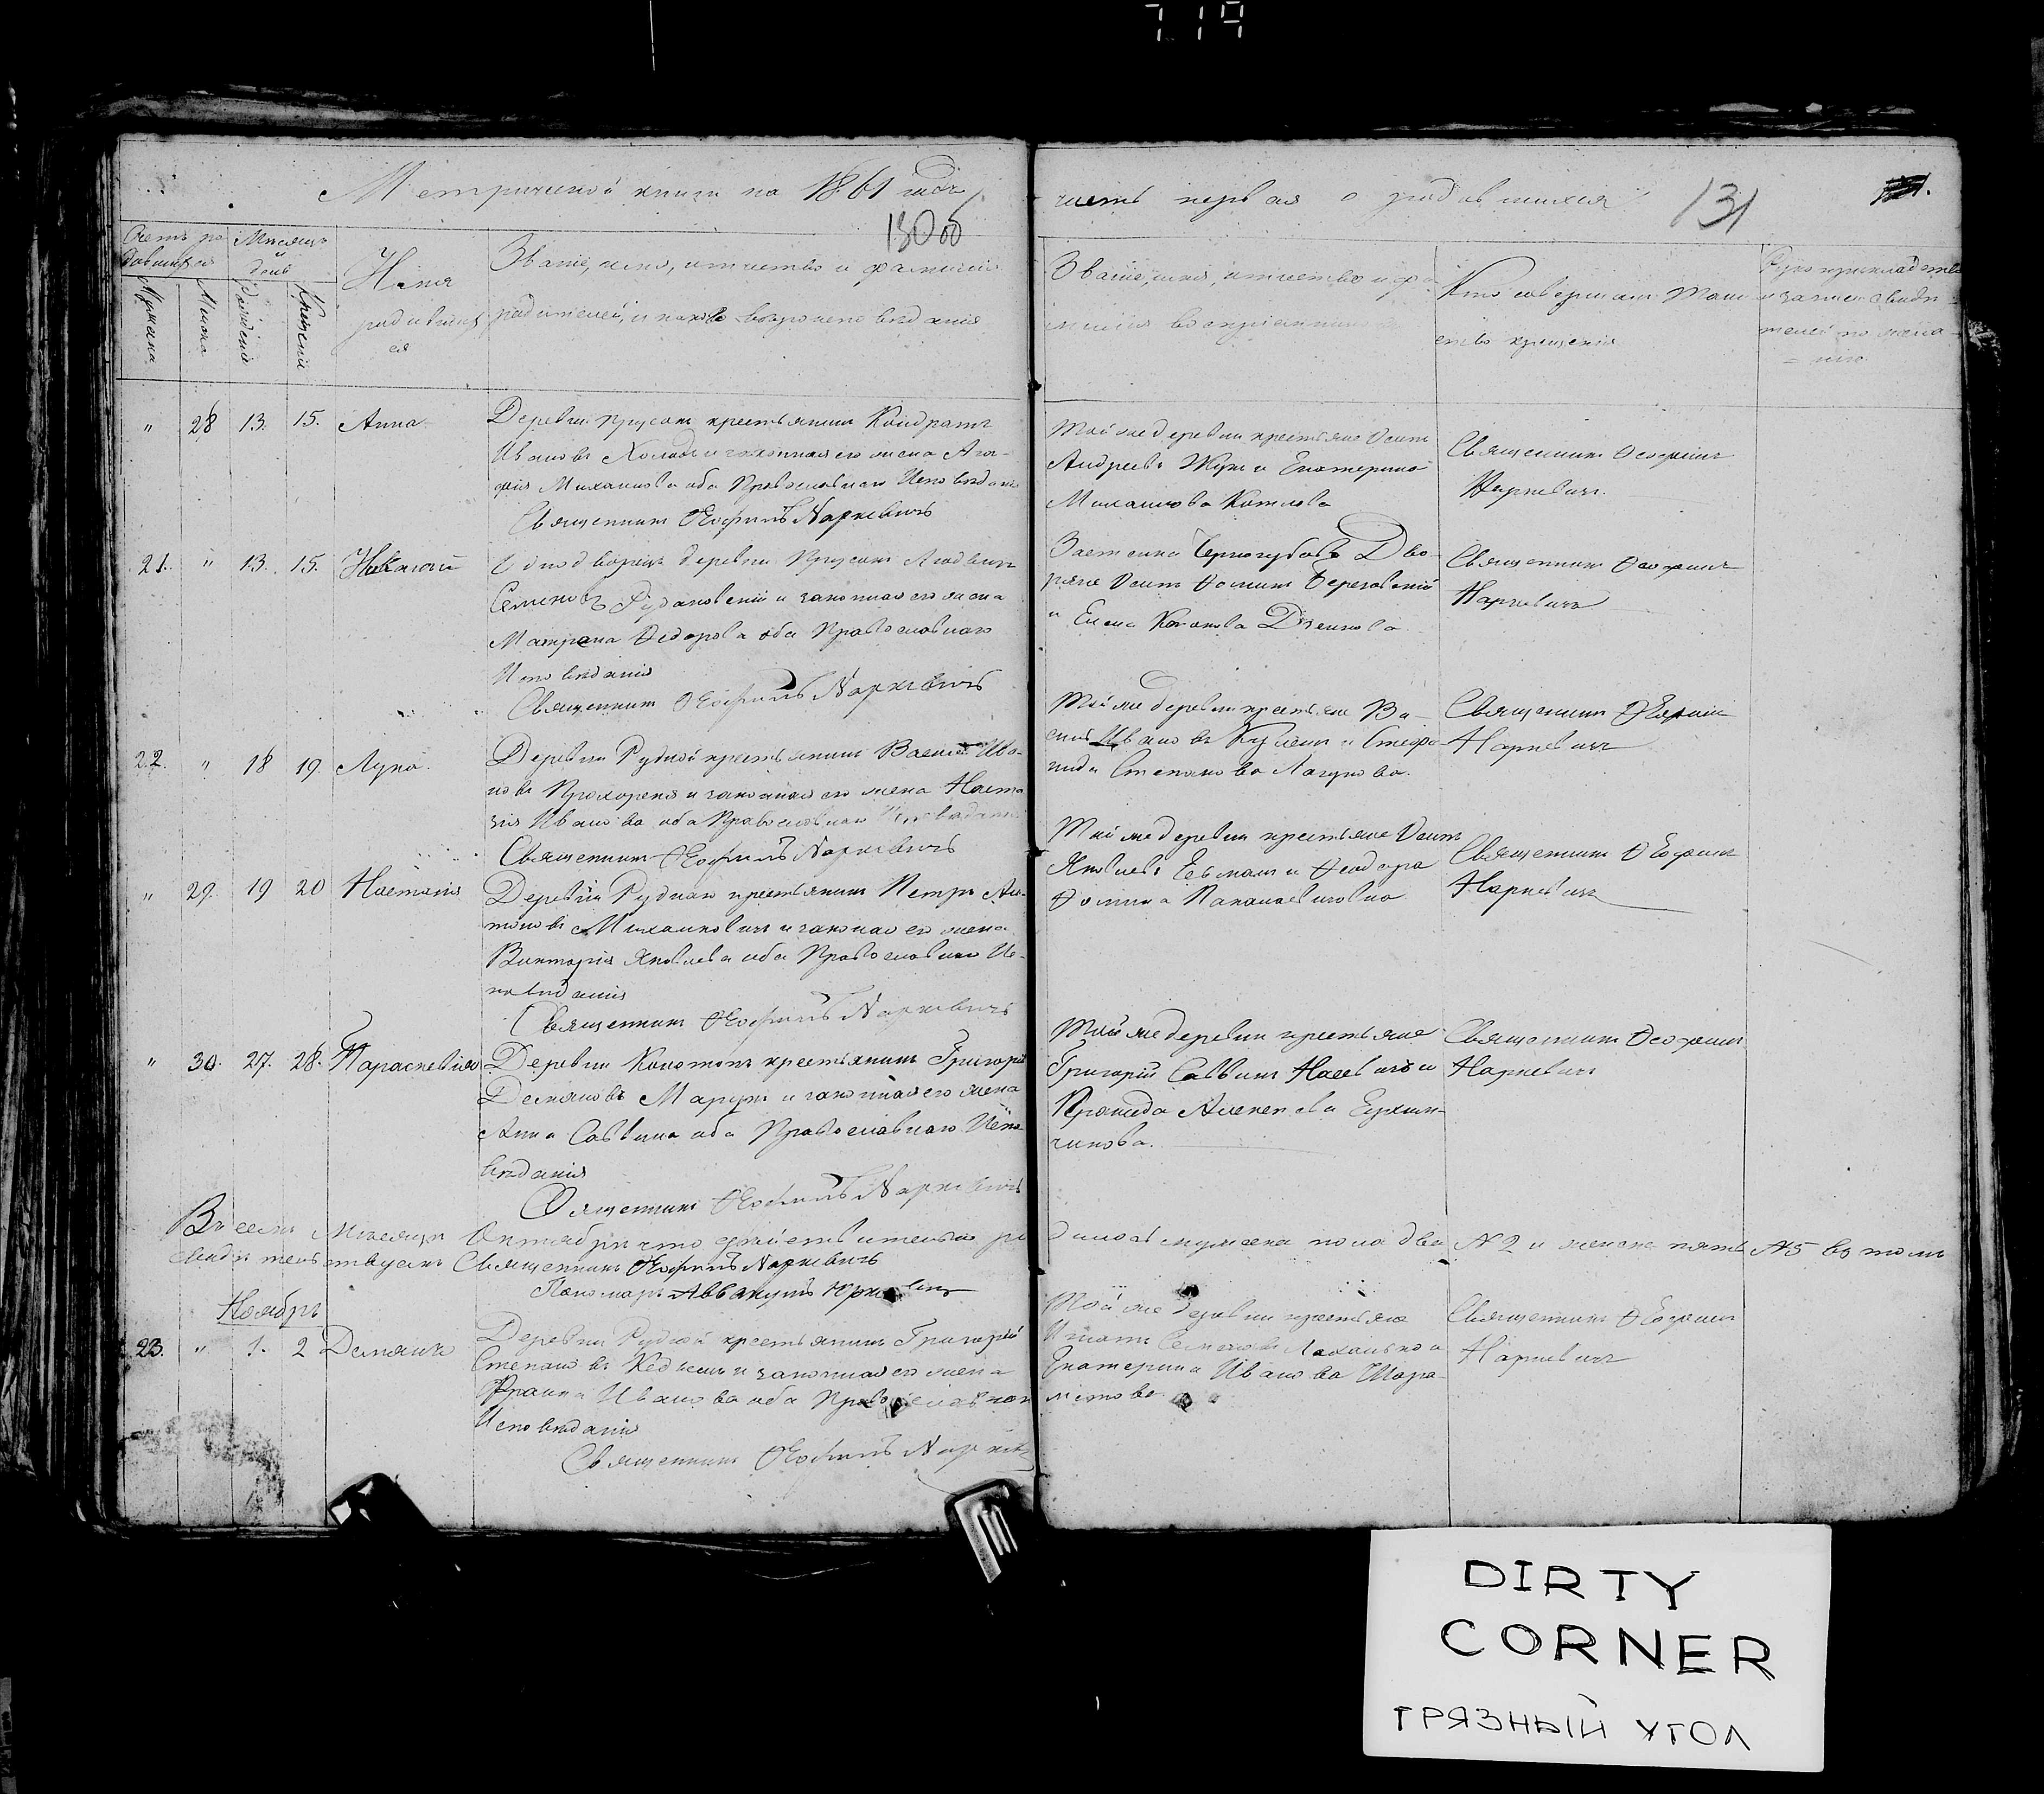 719
Метрической книги на 1861 годъ
часть первая о родившихся
130 об
131
Счетъ ро
дившихся
Мѣсяцъ
и
день
Мужеска
Женска
рожденія
Крещенія
Имя
родивших
ся
Званіе, имя, отчество и фамилія
родителей, и какого вѣроисповѣданія
Званіе, имя, отчество и фа
милія воспріемниковъ
Кто совершалъ Таин
ство крещенія
Рукоприкладство
свидѣ
телей по жела
нію
" 28 13. 15. Анна
Деревни Прусокъ крестьянинъ Кондратъ
Ивановъ и законная его жена Ага
фія Михайлова оба Православнаго Исповѣданія
Священникъ Ѳеофилъ Наркевичъ
Той же деревни крестьяне Осипъ
Андреевъ Жукъ и Екатерина
Михайлова Котлова
Священникъ Ѳеофилъ
Наркевичъ.
21. " 13. 15. Николай
Однодворецъ деревни Прусокъ Людвигъ
Семеновъ и законная его жена
Матрона Ѳедорова оба Православнаго
Исповѣданія
Священникъ Ѳеофилъ Наркевичъ
Застенка Дво
ряне Осипъ Ѳоминъ Березовскій
и Елена
Священникъ Ѳеофилъ
Наркевичъ
22. " 18 19 Лука
Деревни Рудной крестьянинъ Василій Ива
новъ Прохореня и законная его жена Наста
зія Иванова оба Православнаго Исповѣданія
Священникъ Ѳеофилъ Наркевичъ
Той же деревни крестьяне Ва
силій Ивановъ и Стефа
нида Степанова Лагунова.
Священникъ Ѳеофилъ
Наркевичъ
" 29. 19 20 Настазія
Деревни Рудной крестьянинъ Петръ Ан
тоновъ Михалковичъ и законная его жена
Викторія Яковлева оба Православнаго Ис
повѣданія
Священникъ Ѳеофилъ Наркевичъ
Той же деревни крестьяне Осипъ
Яковлевъ и Ѳеодора
Ѳомина
Священникъ Ѳеофилъ
Наркевичъ
" 30. 27. 28. Параскевія
Деревни Конотопъ крестьянинъ Григорій
Демяновъ Марукъ и законная его жена
Анна Саввина оба Православнаго Испо
вѣданія
Священникъ Ѳеофилъ Наркевичъ
Той же деревни крестьяне
Григорій Саввинъ и
Священникъ Ѳеофилъ
Наркевичъ
Въ семъ мѣсяцѣ Октябрѣ что дѣйствительно ро
дилось мужеска пола два №2 и женска пять №5 въ томъ
свидѣтельствуемъ Священникъ Ѳеофилъ Наркевичъ
Пономарь Аввакумъ
Ноябрь
23. " 1. 2 Демянъ
Деревни Рудной крестьянинъ Григорій
Степановъ и законная его жена
Иванова оба Православнаго
Исповѣданія
Священникъ Ѳеофилъ Наркевичъ
Той же деревни крестьяне
Игнатъ Семеновъ и
Екатерина Иванова
Священникъ Ѳеофилъ
Наркевичъ
DIRTY
CORNER
ГРЯЗНЫЙ УГОЛ